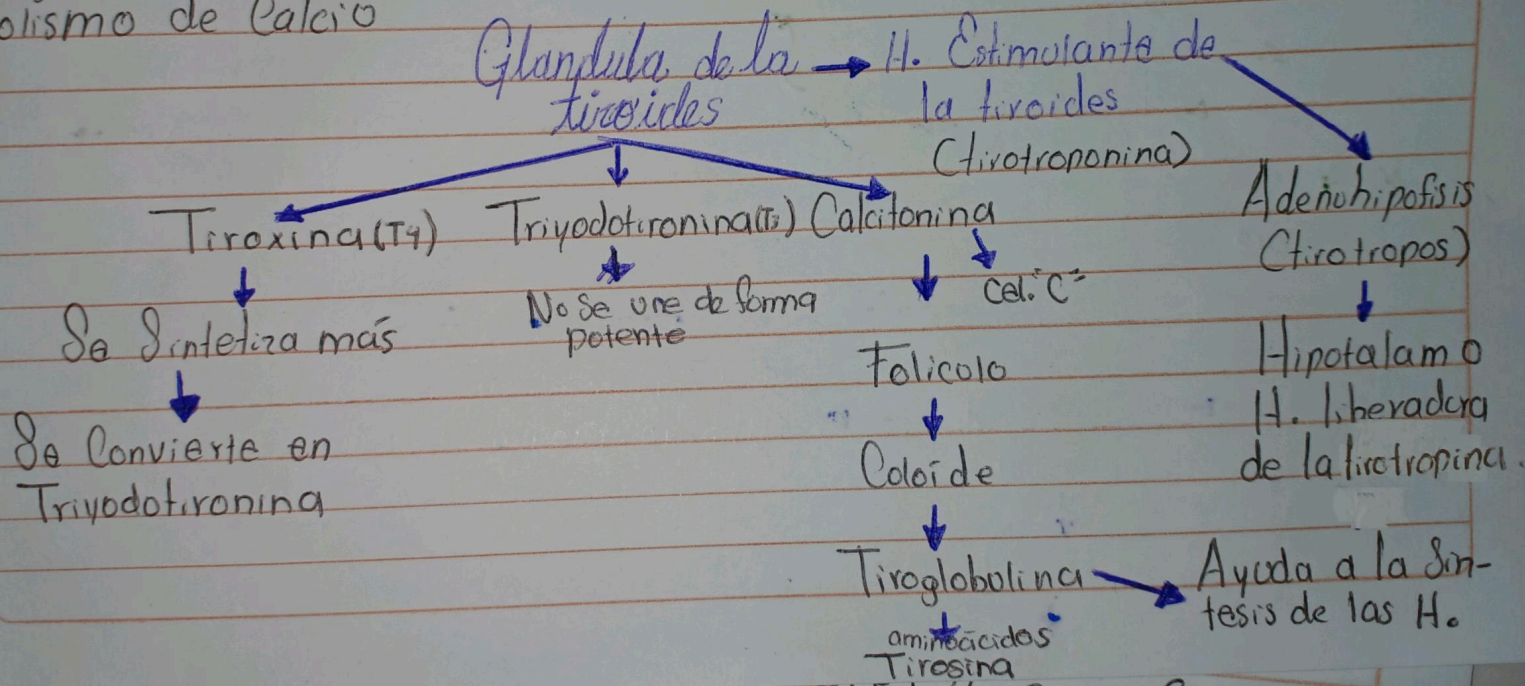 olismo de Calcio
Glandula de la
tiroides
H. Estimulante de
la tiroides
(tirotroponina)
Adenohipofisis
(tirotropos)
Hipotalamo
H. liberadora
de la tirotropina.
Tiroxina (T4)
Se Sintetiza más
Se Convierte en
Triyodotironina
Triyodotironina (T3)
No Se une de forma
potente
Calcitonina
Cel. "C"
Folicolo
Coloide
Tiroglobolina
aminoácidos
Tirosina
Ayuda a la Sin-
tesis de las H.